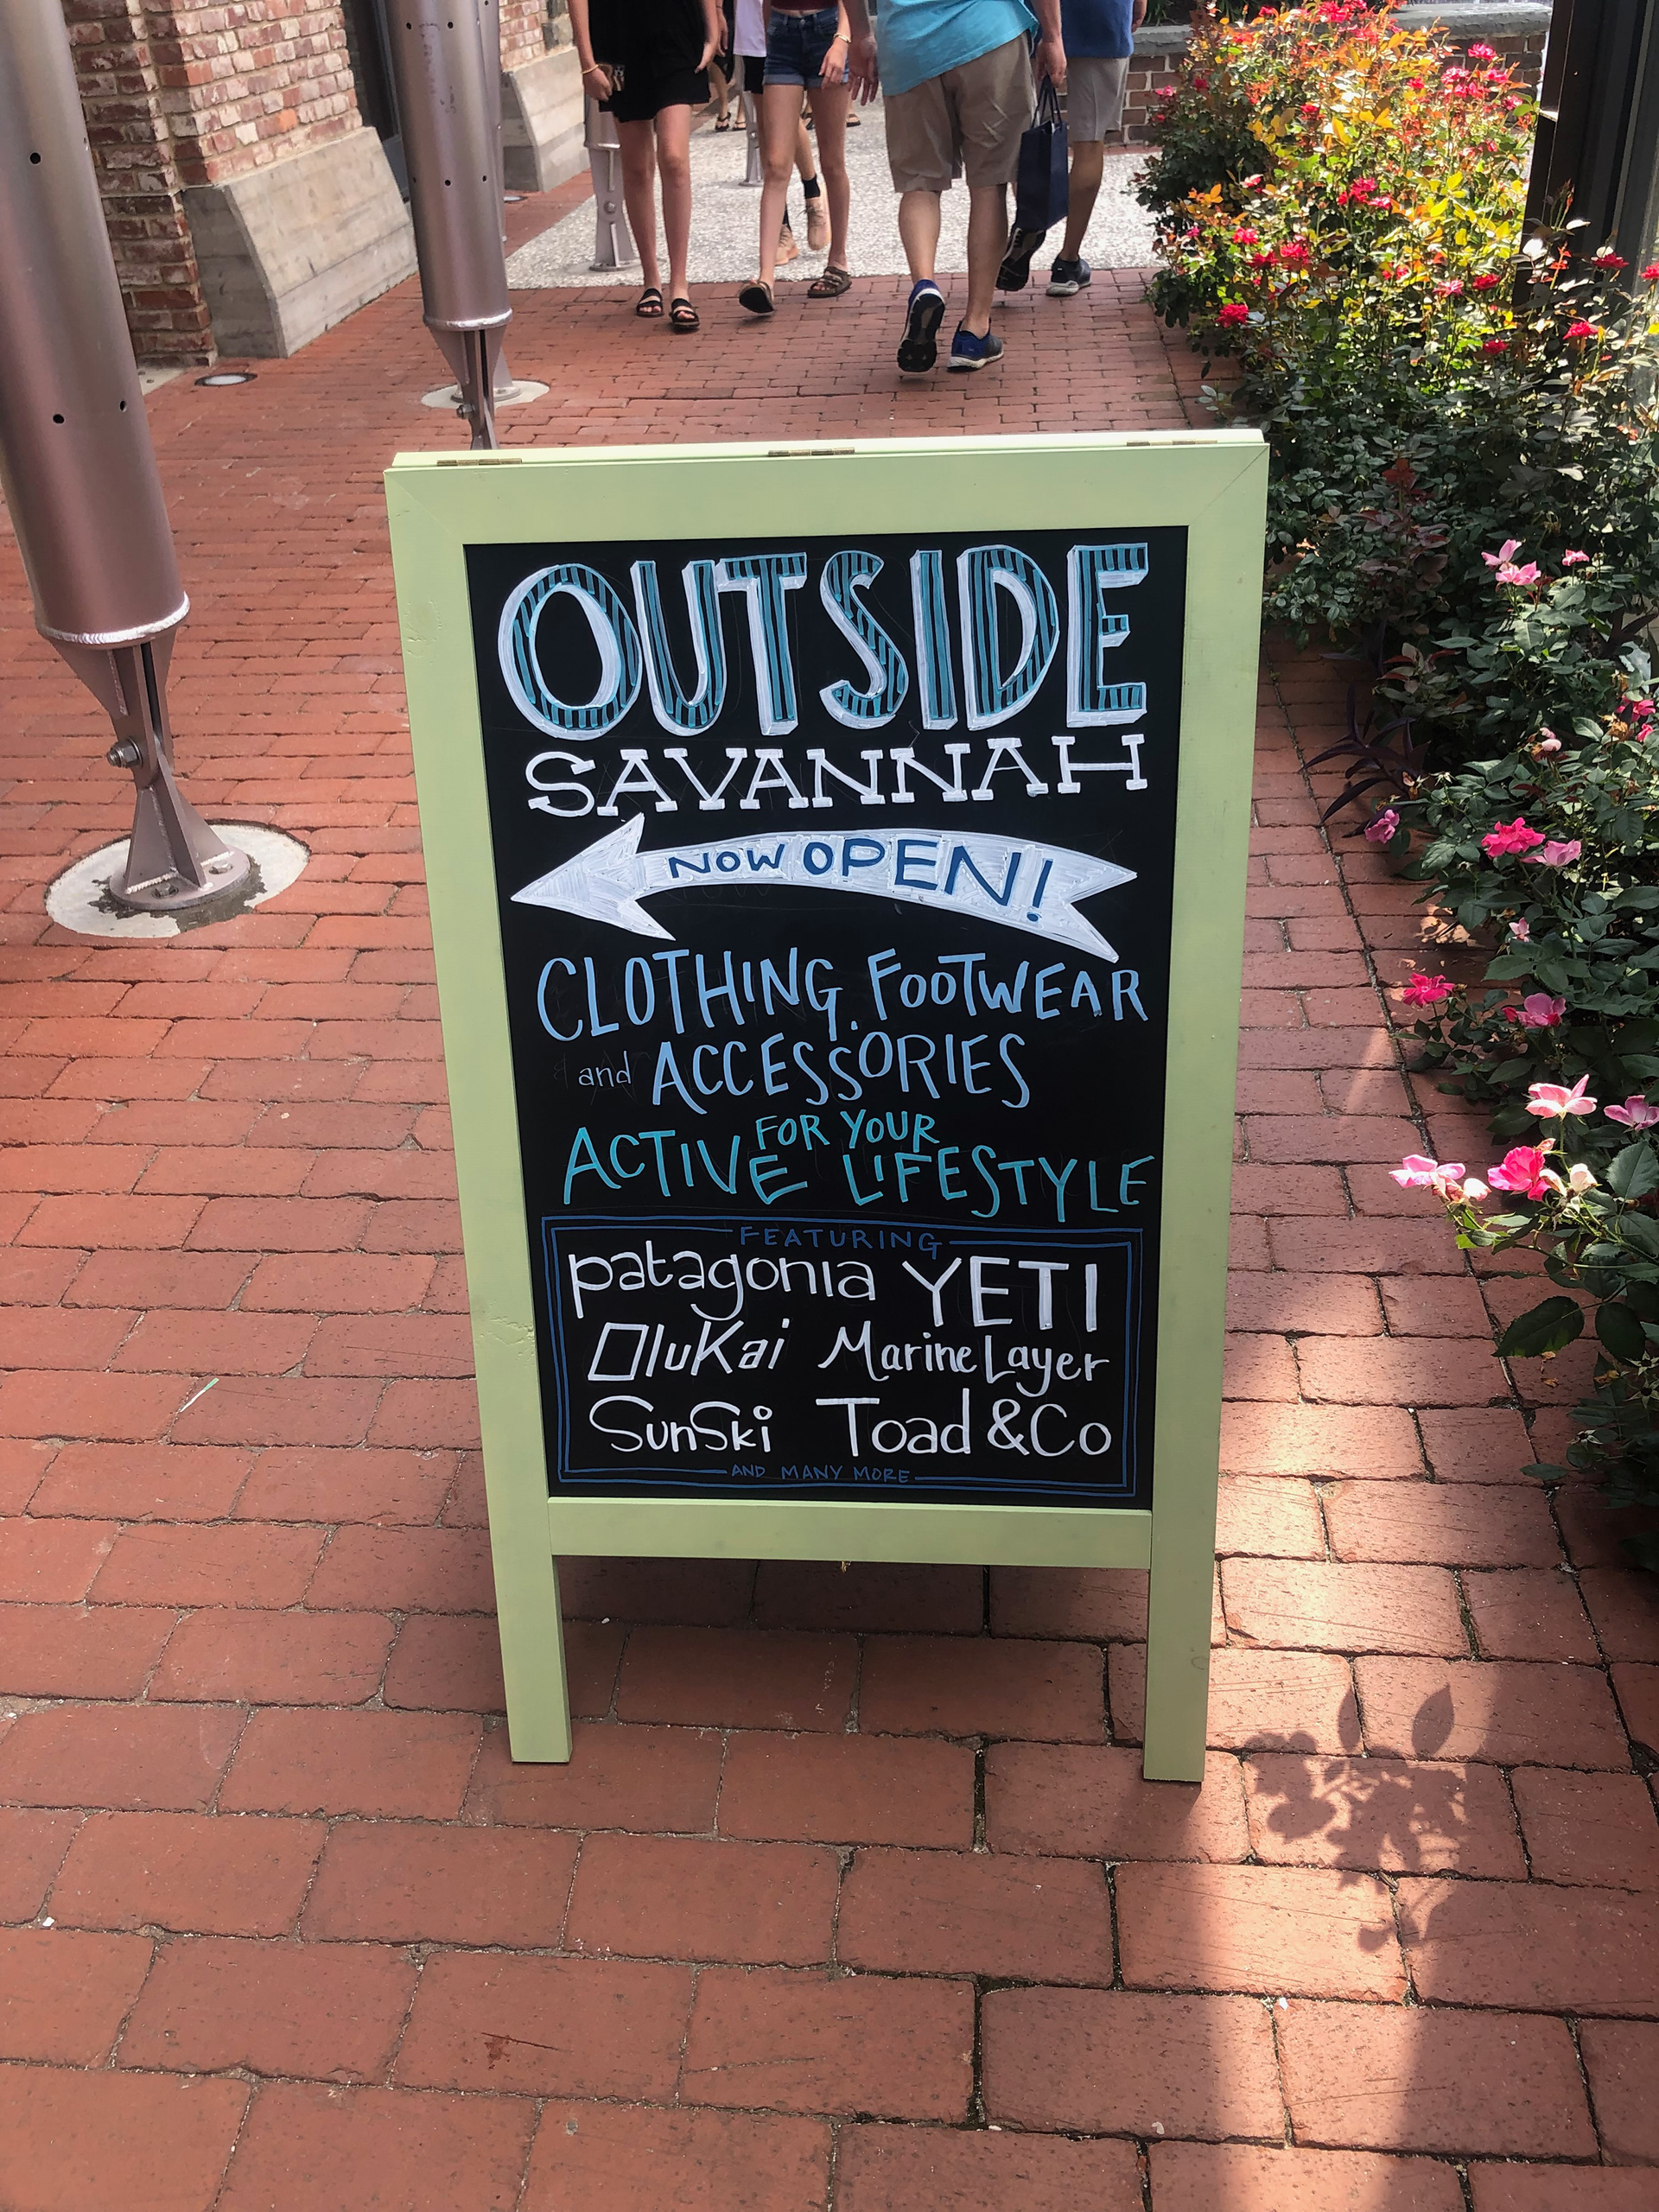 OUTSIDE
SAVANNAH
NOW OPEN!
CLOTHING, FOOTWEAR
and ACCESSORIES
FOR YOUR
ACTIVE LIFESTYLE
FEATURING
patagonia YETI
OluKai Marine Layer
SunSki Toad &Co
AND MANY MORE